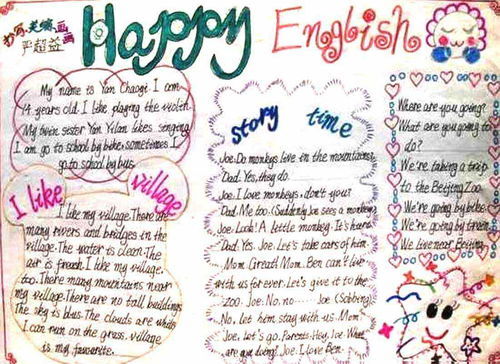 书写、美编、画
严超益 画
Happy English
My name is Yan Chaogi. I am
14 years old. I like playing the violin.
My twin sister Yan Yilan likes singing.
I am go to school by bike, sometimes I
go to school by bus.
I like village
I like my village. There are
many rivers and bridges in the
village. The water is clean. The
air is freach. I like my village,
too. There many mountains near
my village. There are no tall buildings
The sky is blus. The clouds are white
I can run on the grass. village
is my favourite.
story time
Joe: Do monkeys live in the mountains
Dad: Yes, they do.
Joe: I love monkeys, don't you?
Dad: Me too. (Suddenly Joe sees a monkey)
Joe: Look! A little monkey. It's hurt.
Dad: Yes. Joe. Let's take cars of him.
Mom: Great! Mom. Ben can't live
with us for ever. Let's give it to the
zoo. Joe: No, no...... Joe (Sobbing)
No, let him stay with us. Mom
Joe, let's go. Parents: Hey, Joe What
are you doing? Joe: I love Ben.
Where are you going?
What are you going to
do?
We're taking a trip
to the Beijing Zoo
We're going by bike
We're going by train
We live near Beijing